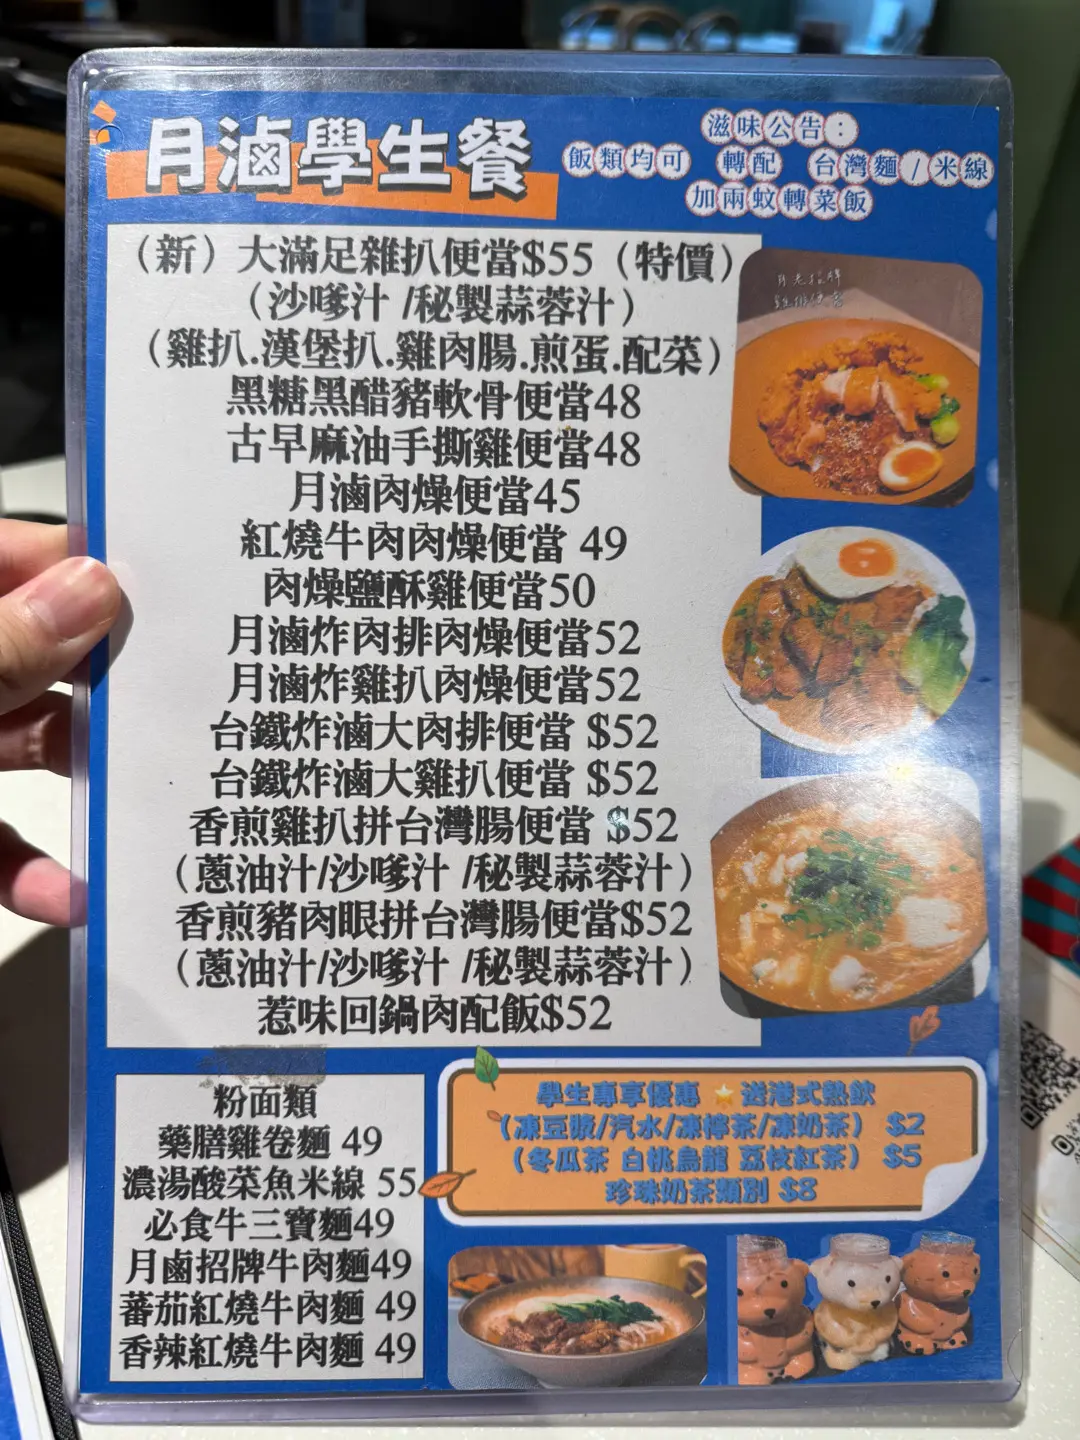 月滷學生餐
滋味公告：
飯類均可 轉配 台灣麵/米線
加兩蚊轉菜飯
（新）大滿足雜扒便當$55（特價）
（沙嗲汁 /秘製蒜蓉汁）
（雞扒.漢堡扒.雞肉腸.煎蛋.配菜）
黑糖黑醋豬軟骨便當48
古早麻油手撕雞便當48
月滷肉燥便當45
紅燒牛肉肉燥便當 49
肉燥鹽酥雞便當50
月滷炸肉排肉燥便當52
月滷炸雞扒肉燥便當52
台鐵炸滷大肉排便當 $52
台鐵炸滷大雞扒便當 $52
香煎雞扒拼台灣腸便當 $52
（蔥油汁/沙嗲汁 /秘製蒜蓉汁）
香煎豬肉眼拼台灣腸便當$52
（蔥油汁/沙嗲汁 /秘製蒜蓉汁）
惹味回鍋肉配飯$52
粉面類
藥膳雞卷麵 49
濃湯酸菜魚米線 55
必食牛三寶麵49
月鹵招牌牛肉麵49
蕃茄紅燒牛肉麵 49
香辣紅燒牛肉麵 49
學生專享優惠 ⭐送港式熱飲
（凍豆漿/汽水/凍檸茶/凍奶茶） $2
（冬瓜茶 白桃烏龍 荔枝紅茶） $5
珍珠奶茶類別 $8